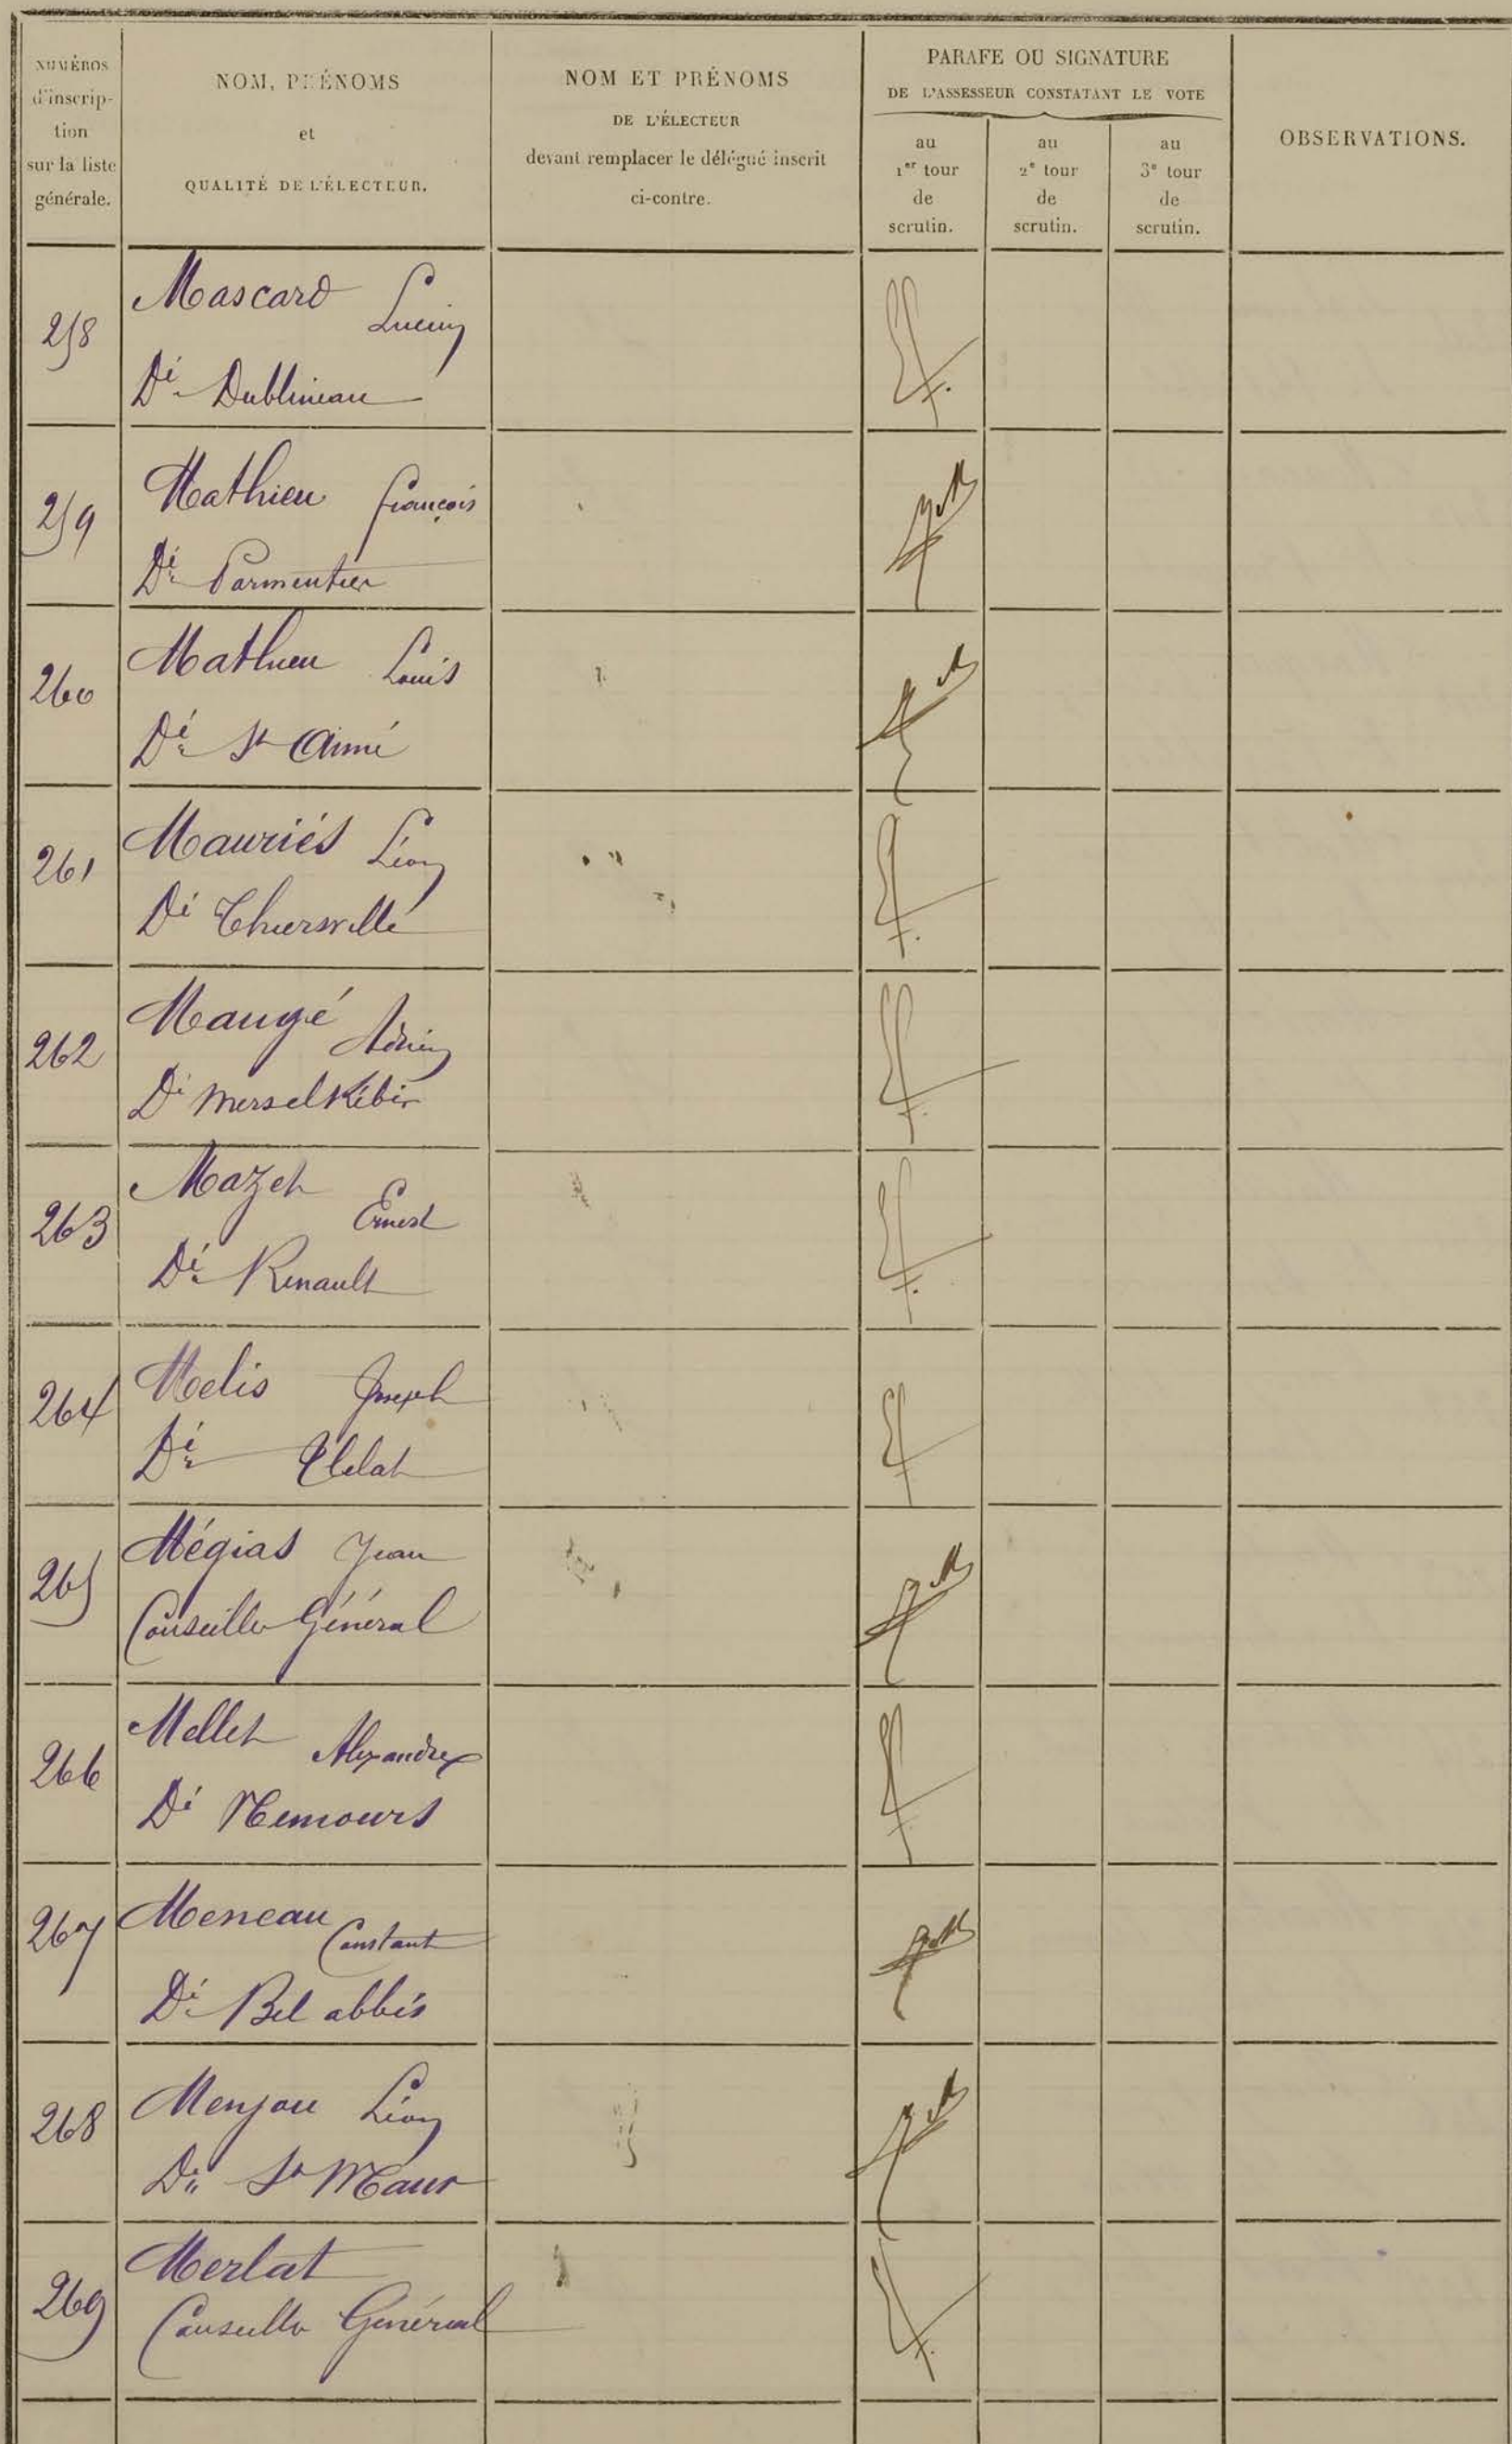 NUMÉROS
d'inscrip-
tion
sur la liste
générale.
NOM, PRÉNOMS
et
QUALITÉ DE L'ÉLECTEUR.
NOM ET PRÉNOMS
DE L'ÉLECTEUR
devant remplacer le délégué inscrit
ci-contre.
PARAFE OU SIGNATURE
DE L'ASSESSEUR CONSTATANT LE VOTE
au
1er tour
de
scrutin.
au
2e tour
de
scrutin.
au
3e tour
de
scrutin.
OBSERVATIONS.
258
Mascard Lucien
Dé Dublineau
259
Mathieu François
Dé Parmentier
260
Mathieu Louis
Dé St Aimé
261
Mauriés Léon
Dé Thiersville
262
Maugé Adrien
Dé Merselkébir
263
Mazet Ernest
Dé Renault
264
Melis Joseph
Dé Tlélat
265
Mégias Jean
Conseiller Général
266
Mellet Alexandre
Dé Nemours
267
Meneau Constant
Dé Bel abbés
268
Menjou Léon
Dé St Maur
269
Merlat
Conseiller Général